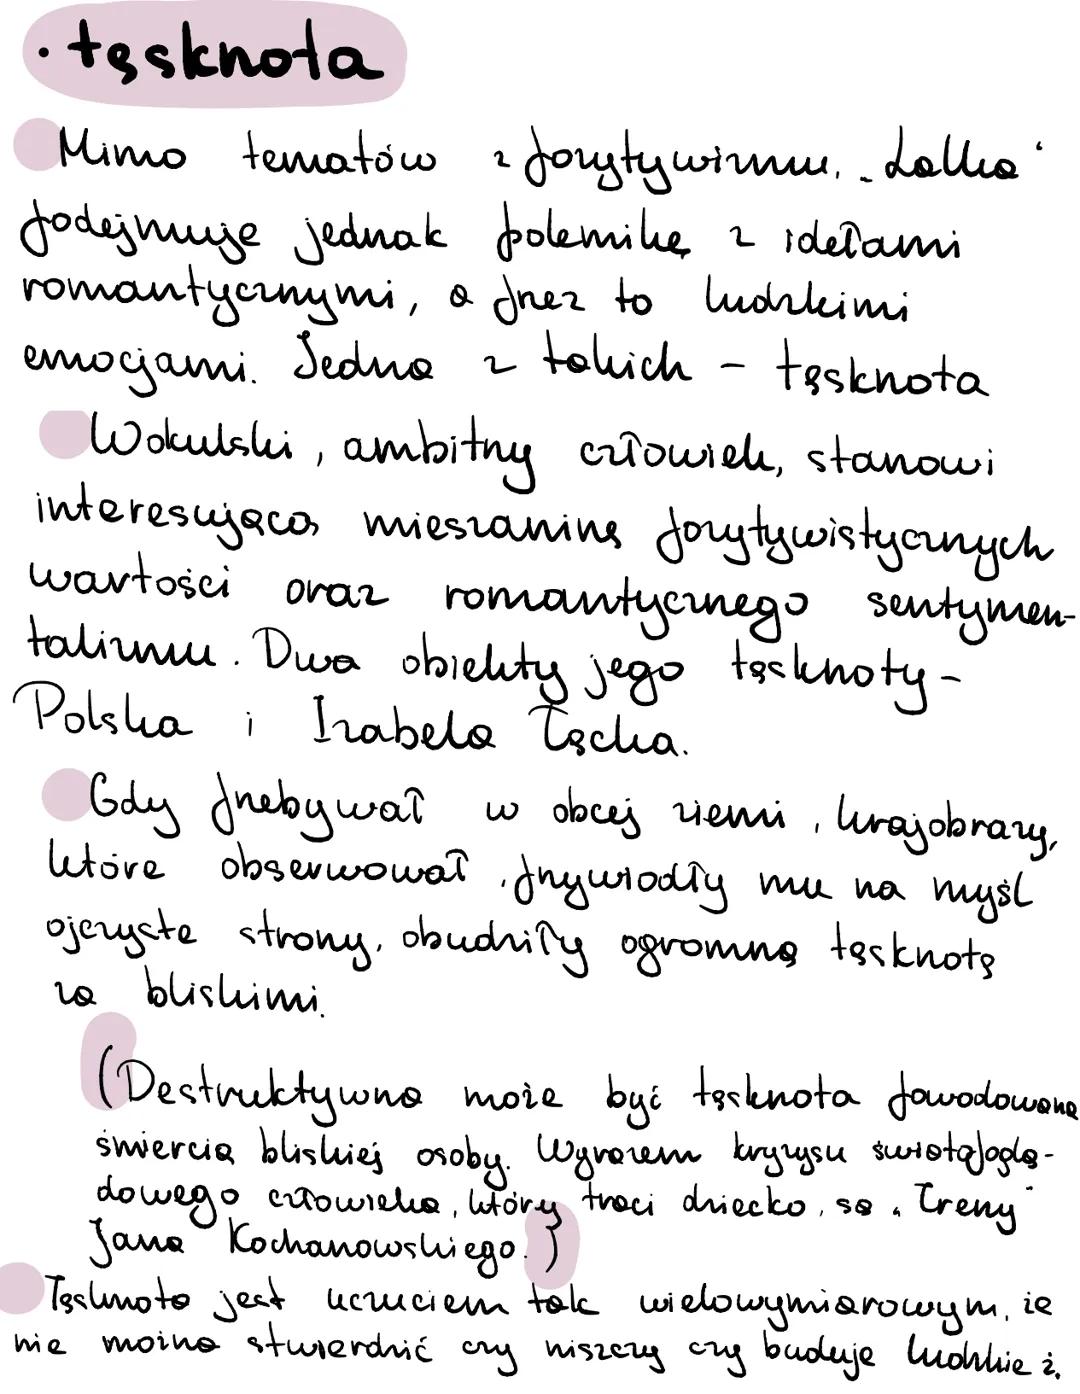 • tęsknota
Mimo tematów z pozytywizmu, „Lalka"
podejmuje jednak polemikę z ideałami
romantycznymi, a przez to ludzkimi
emocjami. Jedna z takich – tęsknota
Wokulski, ambitny człowiek, stanowi
interesującą mieszaninę pozytywistycznych
wartości oraz romantycznego sentymen-
talizmu. Dwa obiekty jego tęsknoty –
Polska i Izabela Łęcka.
Gdy przebywał w obcej ziemi, krajobrazy,
które obserwował, przywiodły mu na myśl
ojczyste strony, obudziły ogromną tęsknotę
za bliskimi.
(Destruktywna może być tęsknota powodowana
śmiercią bliskiej osoby. Wyrazem kryzysu światopoglą-
dowego człowieka, który traci dziecko, są „Treny"
Jana Kochanowskiego.)
Tęsknota jest uczuciem tak wielowymiarowym, że
nie można stwierdzić czy niszczy czy buduje ludzkie ż.